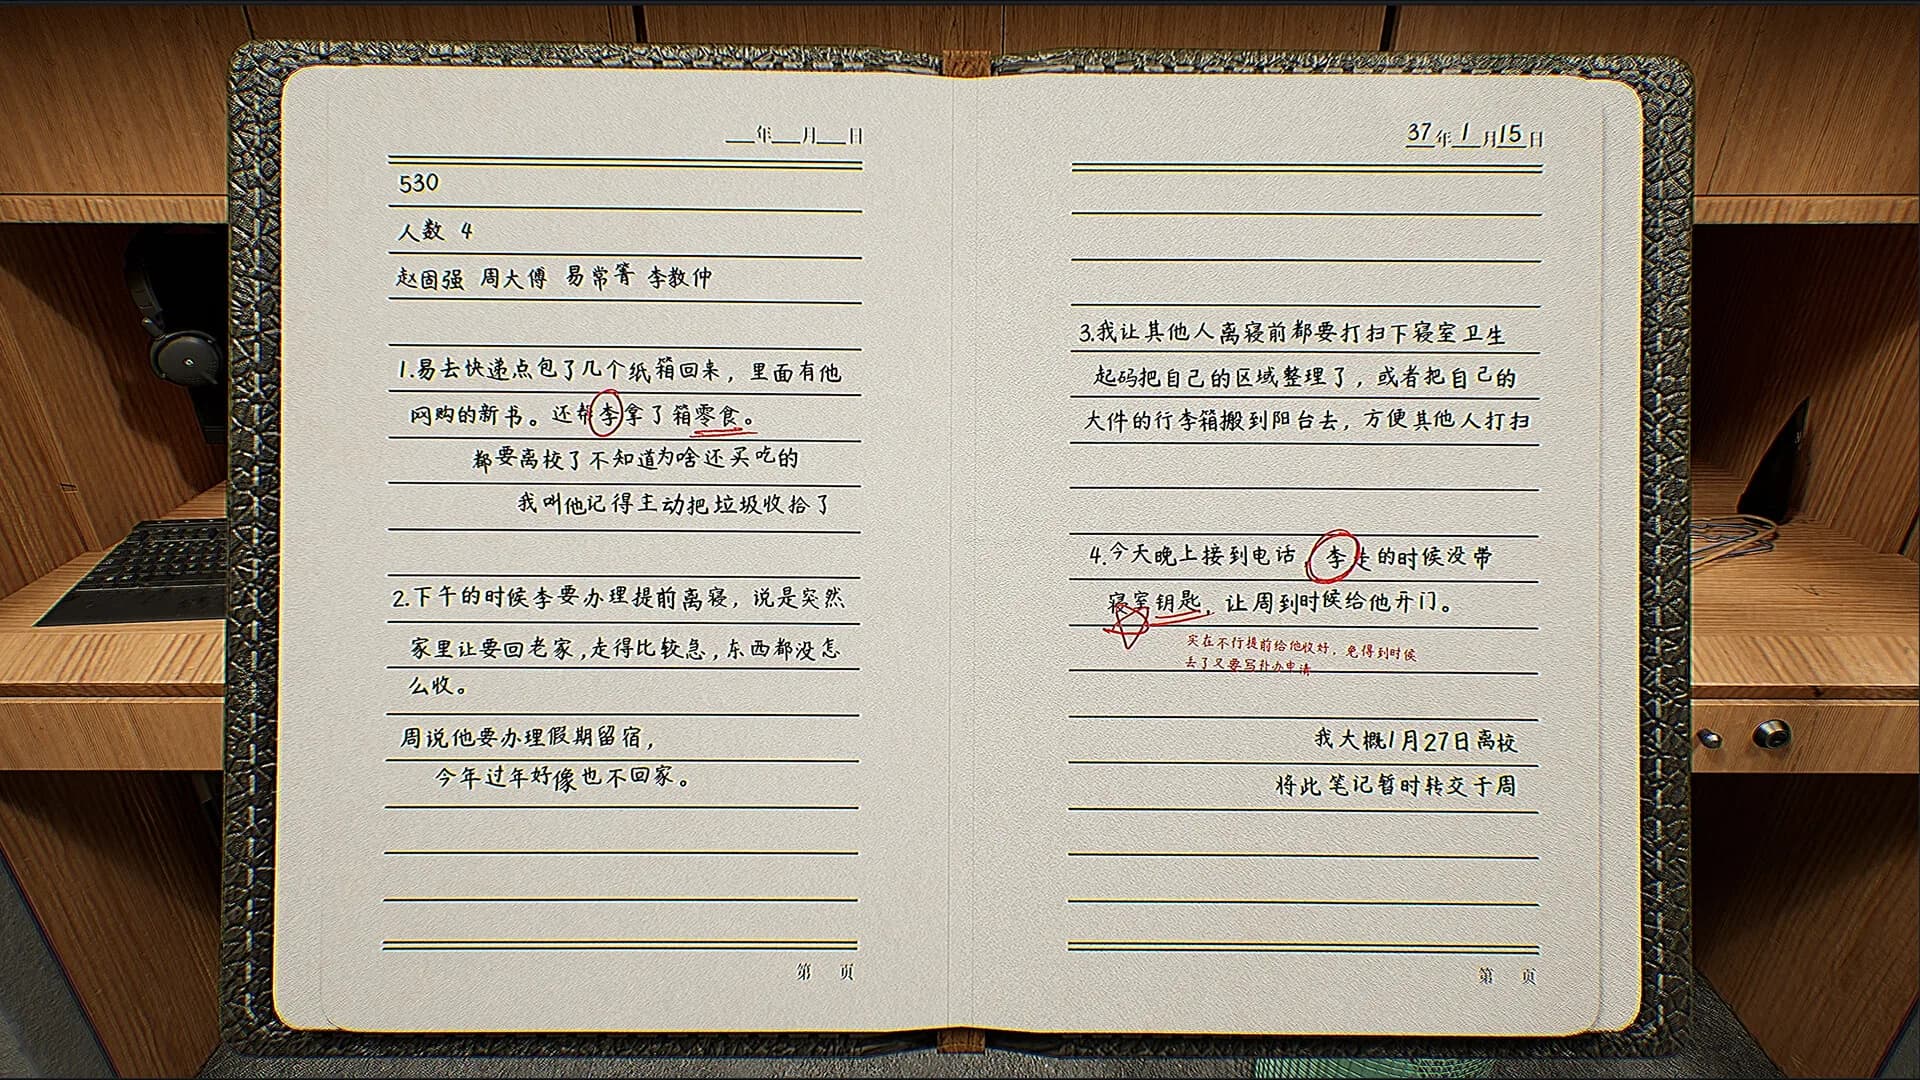 __年__月__日
530
人数 4
赵固强 周大傅 易常箐 李教仲
1.易去快递点包了几个纸箱回来，里面有他
网购的新书。还帮李拿了箱零食。
都要离校了不知道为啥还买吃的
我叫他记得主动把垃圾收拾了
2.下午的时候李要办理提前离寝，说是突然
家里让要回老家,走得比较急,东西都没怎
么收。
周说他要办理假期留宿，
今年过年好像也不回家。
第 页
37年1月15日
3.我让其他人离寝前都要打扫下寝室卫生
起码把自己的区域整理了，或者把自己的
大件的行李箱搬到阳台去，方便其他人打扫
4.今天晚上接到电话，李走的时候没带
寝室钥匙，让周到时候给他开门。
实在不行提前给他收好，免得到时候
去了又要写补办申请
我大概1月27日离校
将此笔记暂时转交于周
第 页